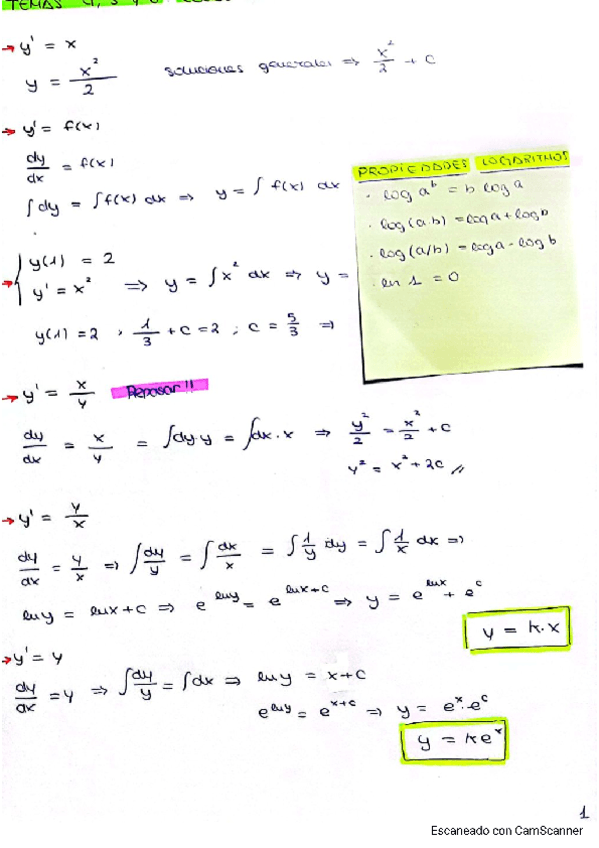 TEMAS 4, 5 y 6
→ y' = x
y = x²/2    soluciones generales ⇒ x²/2 + c
→ y' = f(x)
dy/dx = f(x)
∫dy = ∫f(x) dx ⇒ y = ∫ f(x) dx
PROPIEDADES LOGARITMOS
· log a^b = b log a
· log(a·b) = log a + log b
· log(a/b) = log a - log b
· ln 1 = 0
→ { y(1) = 2
y' = x² ⇒ y = ∫x² dx ⇒ y =
y(1) = 2 , 1/3 + c = 2 ; c = 5/3 ⇒
→ y' = x/y   Repasar!!
dy/dx = x/y = ∫dy·y = ∫dx·x ⇒ y²/2 = x²/2 + c
y² = x² + 2c //
→ y' = y/x
dy/dx = y/x ⇒ ∫dy/y = ∫dx/x = ∫1/y dy = ∫1/x dx ⇒
lny = lnx + c ⇒ e^lny = e^lnx+c ⇒ y = e^lnx + e^c
y = k·x
→ y' = y
dy/dx = y ⇒ ∫dy/y = ∫dx ⇒ lny = x+c
e^lny = e^x+c ⇒ y = e^x·e^c
y = ke^x
1
Escaneado con CamScanner